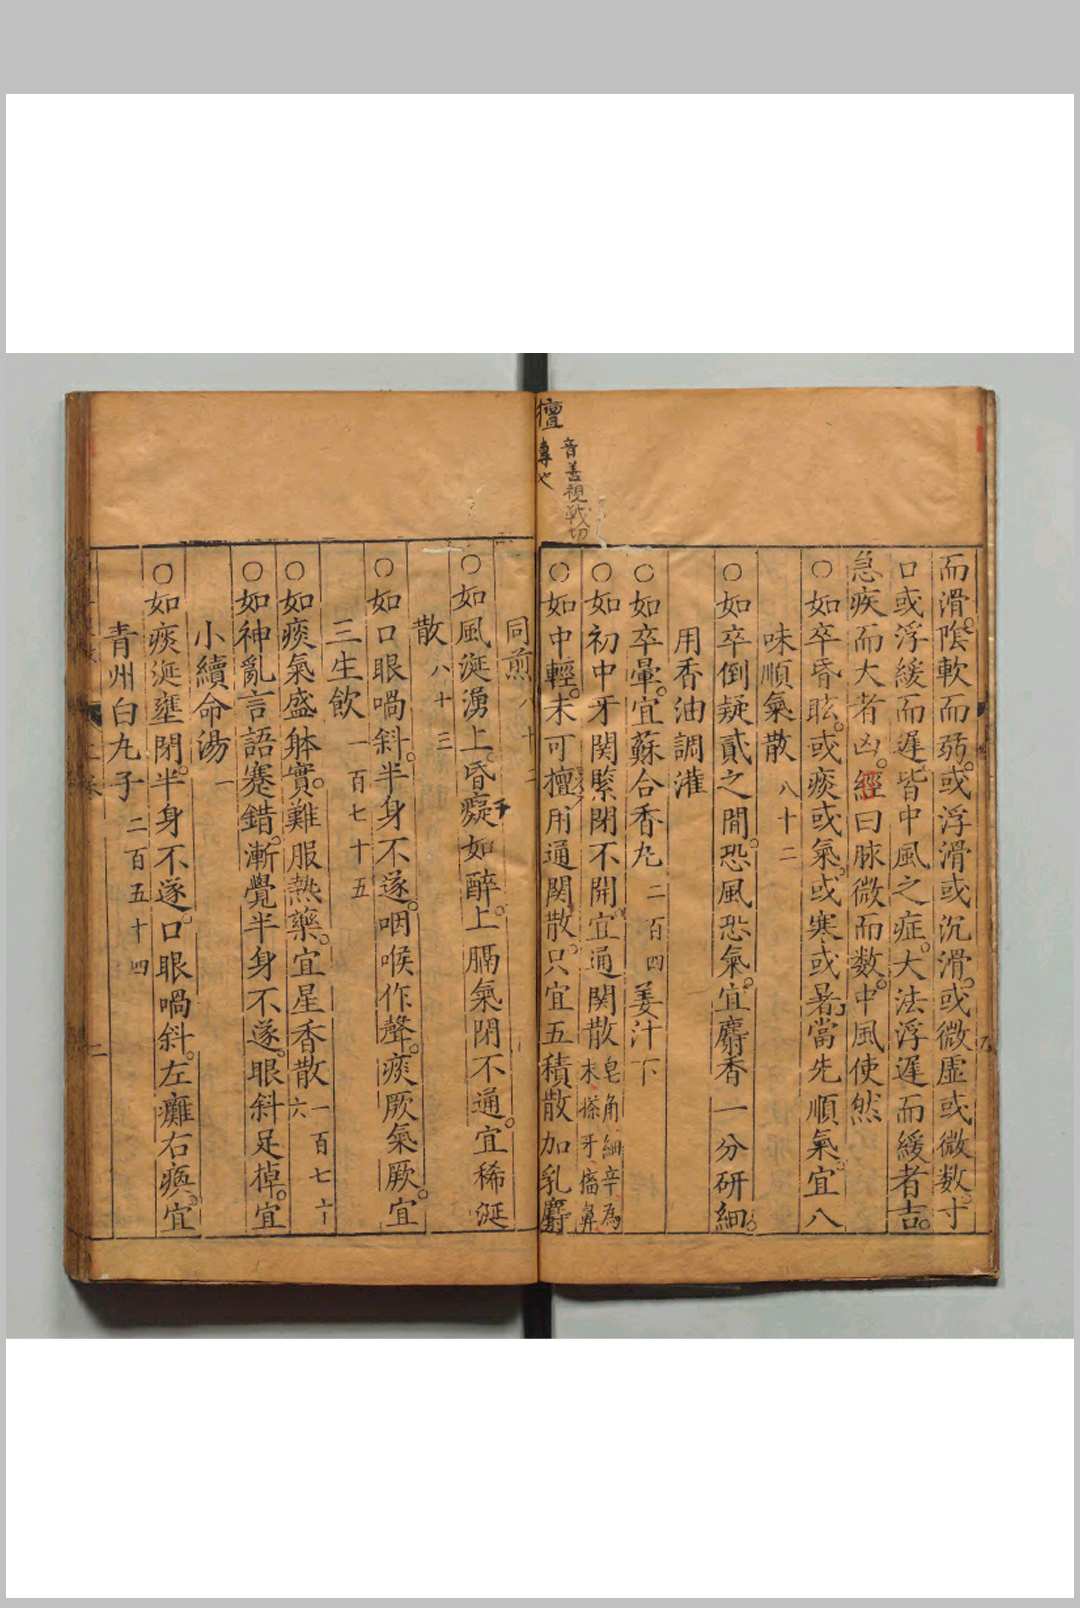 而滑。陰軟而弱。或浮滑或沉滑。或微虛或微數。寸
口或浮緩而遲皆中風之症。大法浮遲而緩者吉。
急疾而大者凶。經曰脉微而數。中風使然
○如卒昏眩。或痰或氣。或寒或暑當先順氣。宜八
味順氣散 八十二
○如卒倒疑貳之間。恐風恐氣。宜麝香一分研細。
用香油調灌
○如卒暈。宜蘇合香丸 二百四 姜汁下
○如初中牙関緊閉不開。宜通関散 皂角細辛為
末搽牙㩉鼻
○如中輕。未可擅用通関散。只宜五積散加乳麝
擅
專也
音善視战切
同煎 八十二
○如風涎湧上。昏癡如醉。上膈氣閉不通。宜稀涎
散 八十三
○如口眼喎斜。半身不遂。咽喉作聲。痰厥氣厥。宜
三生飲 一百七十五
○如痰氣盛躰實。難服熱藥。宜星香散 一百七十
六
○如神亂言語蹇錯。漸覺半身不遂。眼斜足掉。宜
小續命湯 一
○如痰涎壅閉。半身不遂。口眼喎斜。左癱右瘓。宜
青州白丸子 二百五十四